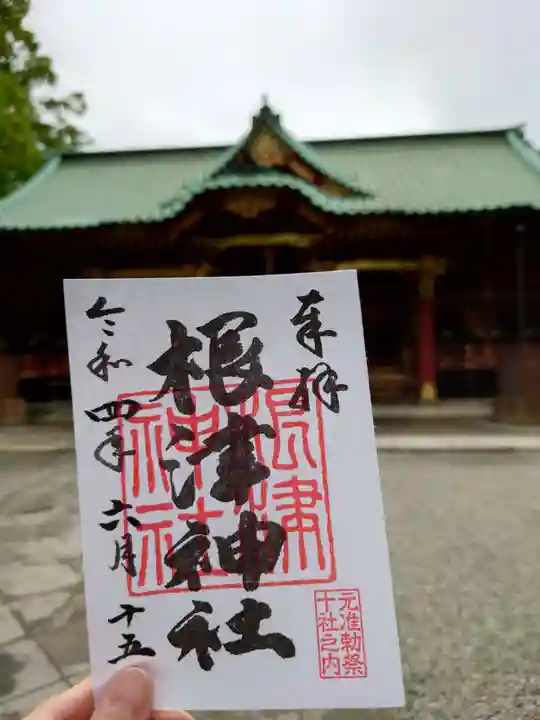 奉拝
根津神社
令和四年六月十五
根津神社
元准勅祭
十社之内